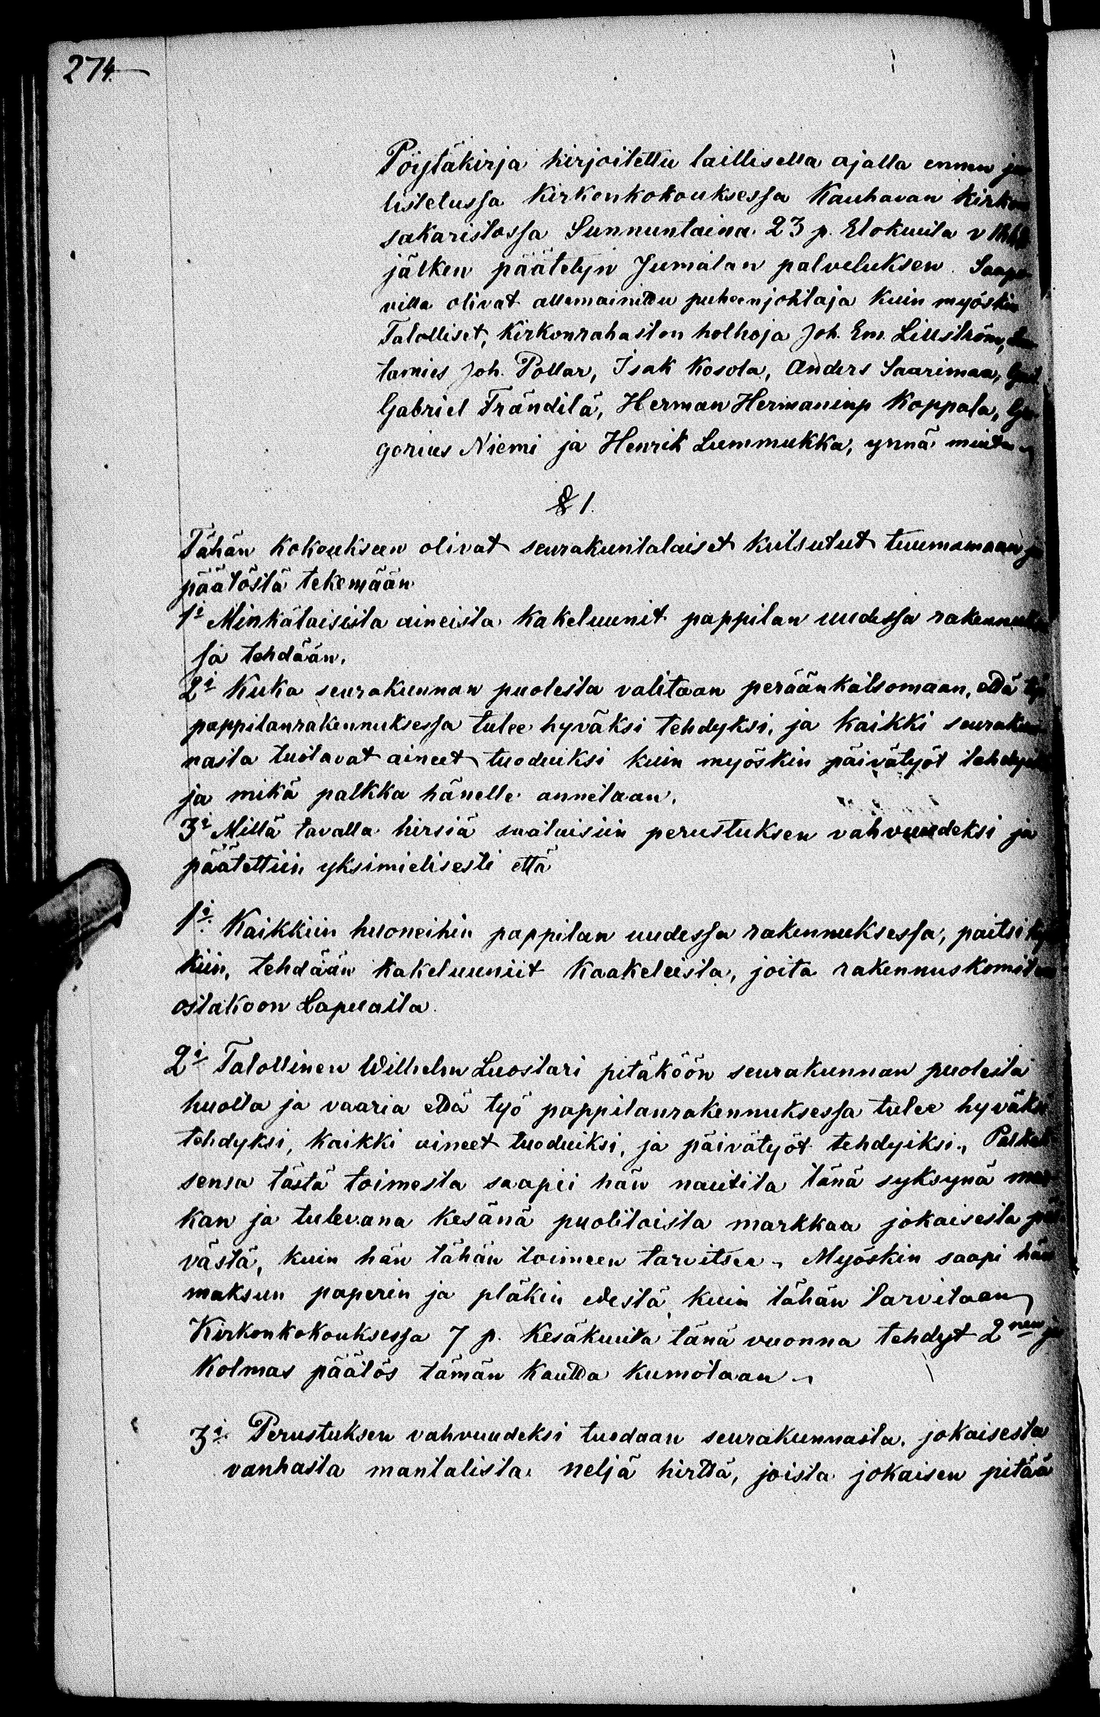 274
Pöytäkirja kirjoitettu laillisella ajalla ennen ju
listetussa Kirkonkokouksessa Kauhavan Kirkon
sakaristossa Sunnuntaina 23 p. Elokuuta v
jälken päätetyn Jumalan palveluksen. Saapu
villa olivat allamainittu puheenjohtaja kuin myöskin
Talolliset, Kirkonrahaston holhoja Joh. Em. Lillström,
tamies Joh. Pollar, Isak Kosola, Anders Saarimaa,
Gabriel Frändilä, Herman Hermaninp Koppala, Gre
gorius Niemi ja Henrik Lummukka, ynnä muita
§ 1.
Tähän kokoukseen olivat seurakuntalaiset kutsutut tuumamaan ja
päätöstä tekemään
1:i Minkälaisista aineista kakeluunit pappilan uudessa rakennukses
sa tehdään.
2:i Kuka seurakunnan puolesta valitaan peräänkatsomaan, että työ
pappilanrakennuksessa tulee hyväksi tehdyksi, ja kaikki seurakun
nasta tuotavat aineet tuoduiksi kuin myöskin päivätyöt tehdyiksi
ja mikä palkka hänelle annetaan.
3:i Millä tavalla hirsiä saataisiin perustuksen vahvuudeksi ja
päätettiin yksimielisesti että
1:i Kaikkiin huoneihin pappilan uudessa rakennuksessa, paitsi
kiin, tehdään kakeluunit Kaakeleista, joita rakennuskomitea
ostakoon Lapualta.
2:i Talollinen Wilhelm Luostari pitäköön seurakunnan puolesta
huolta ja vaaria että työ pappilanrakennuksessa tulee hyväksi
tehdyksi, kaikki aineet tuoduiksi, ja päivätyöt tehdyiksi., Palkak
sensa tästä toimesta saapii hän nautita tänä syksynä mar
kan ja tulevana kesänä puolitoista markkaa jokaisesta päi
västä, kuin hän tähän toimeen tarvitsee. Myöskin saapi hän
maksun paperin ja pläkin edestä kuin tähän tarvitaan
Kirkonkokouksessa 7 p. Kesäkuuta tänä vuonna tehdyt 2nen ja
Kolmas päätös tämän kautta kumotaan.
3:i Perustuksen vahvuudeksi tuodaan seurakunnasta, jokaisesta
vanhasta mantalista neljä hirttä, joista jokaisen pitää